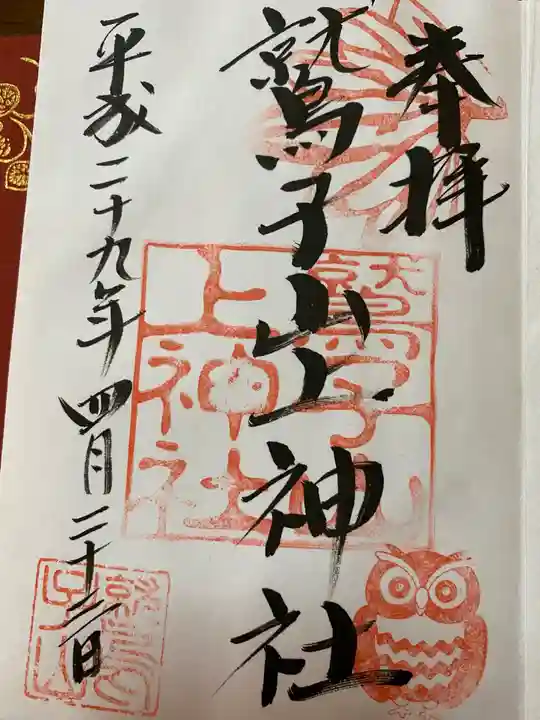 奉拝
鷲子山上神社
平成二十九年四月二十三日
鷲子山
上神社